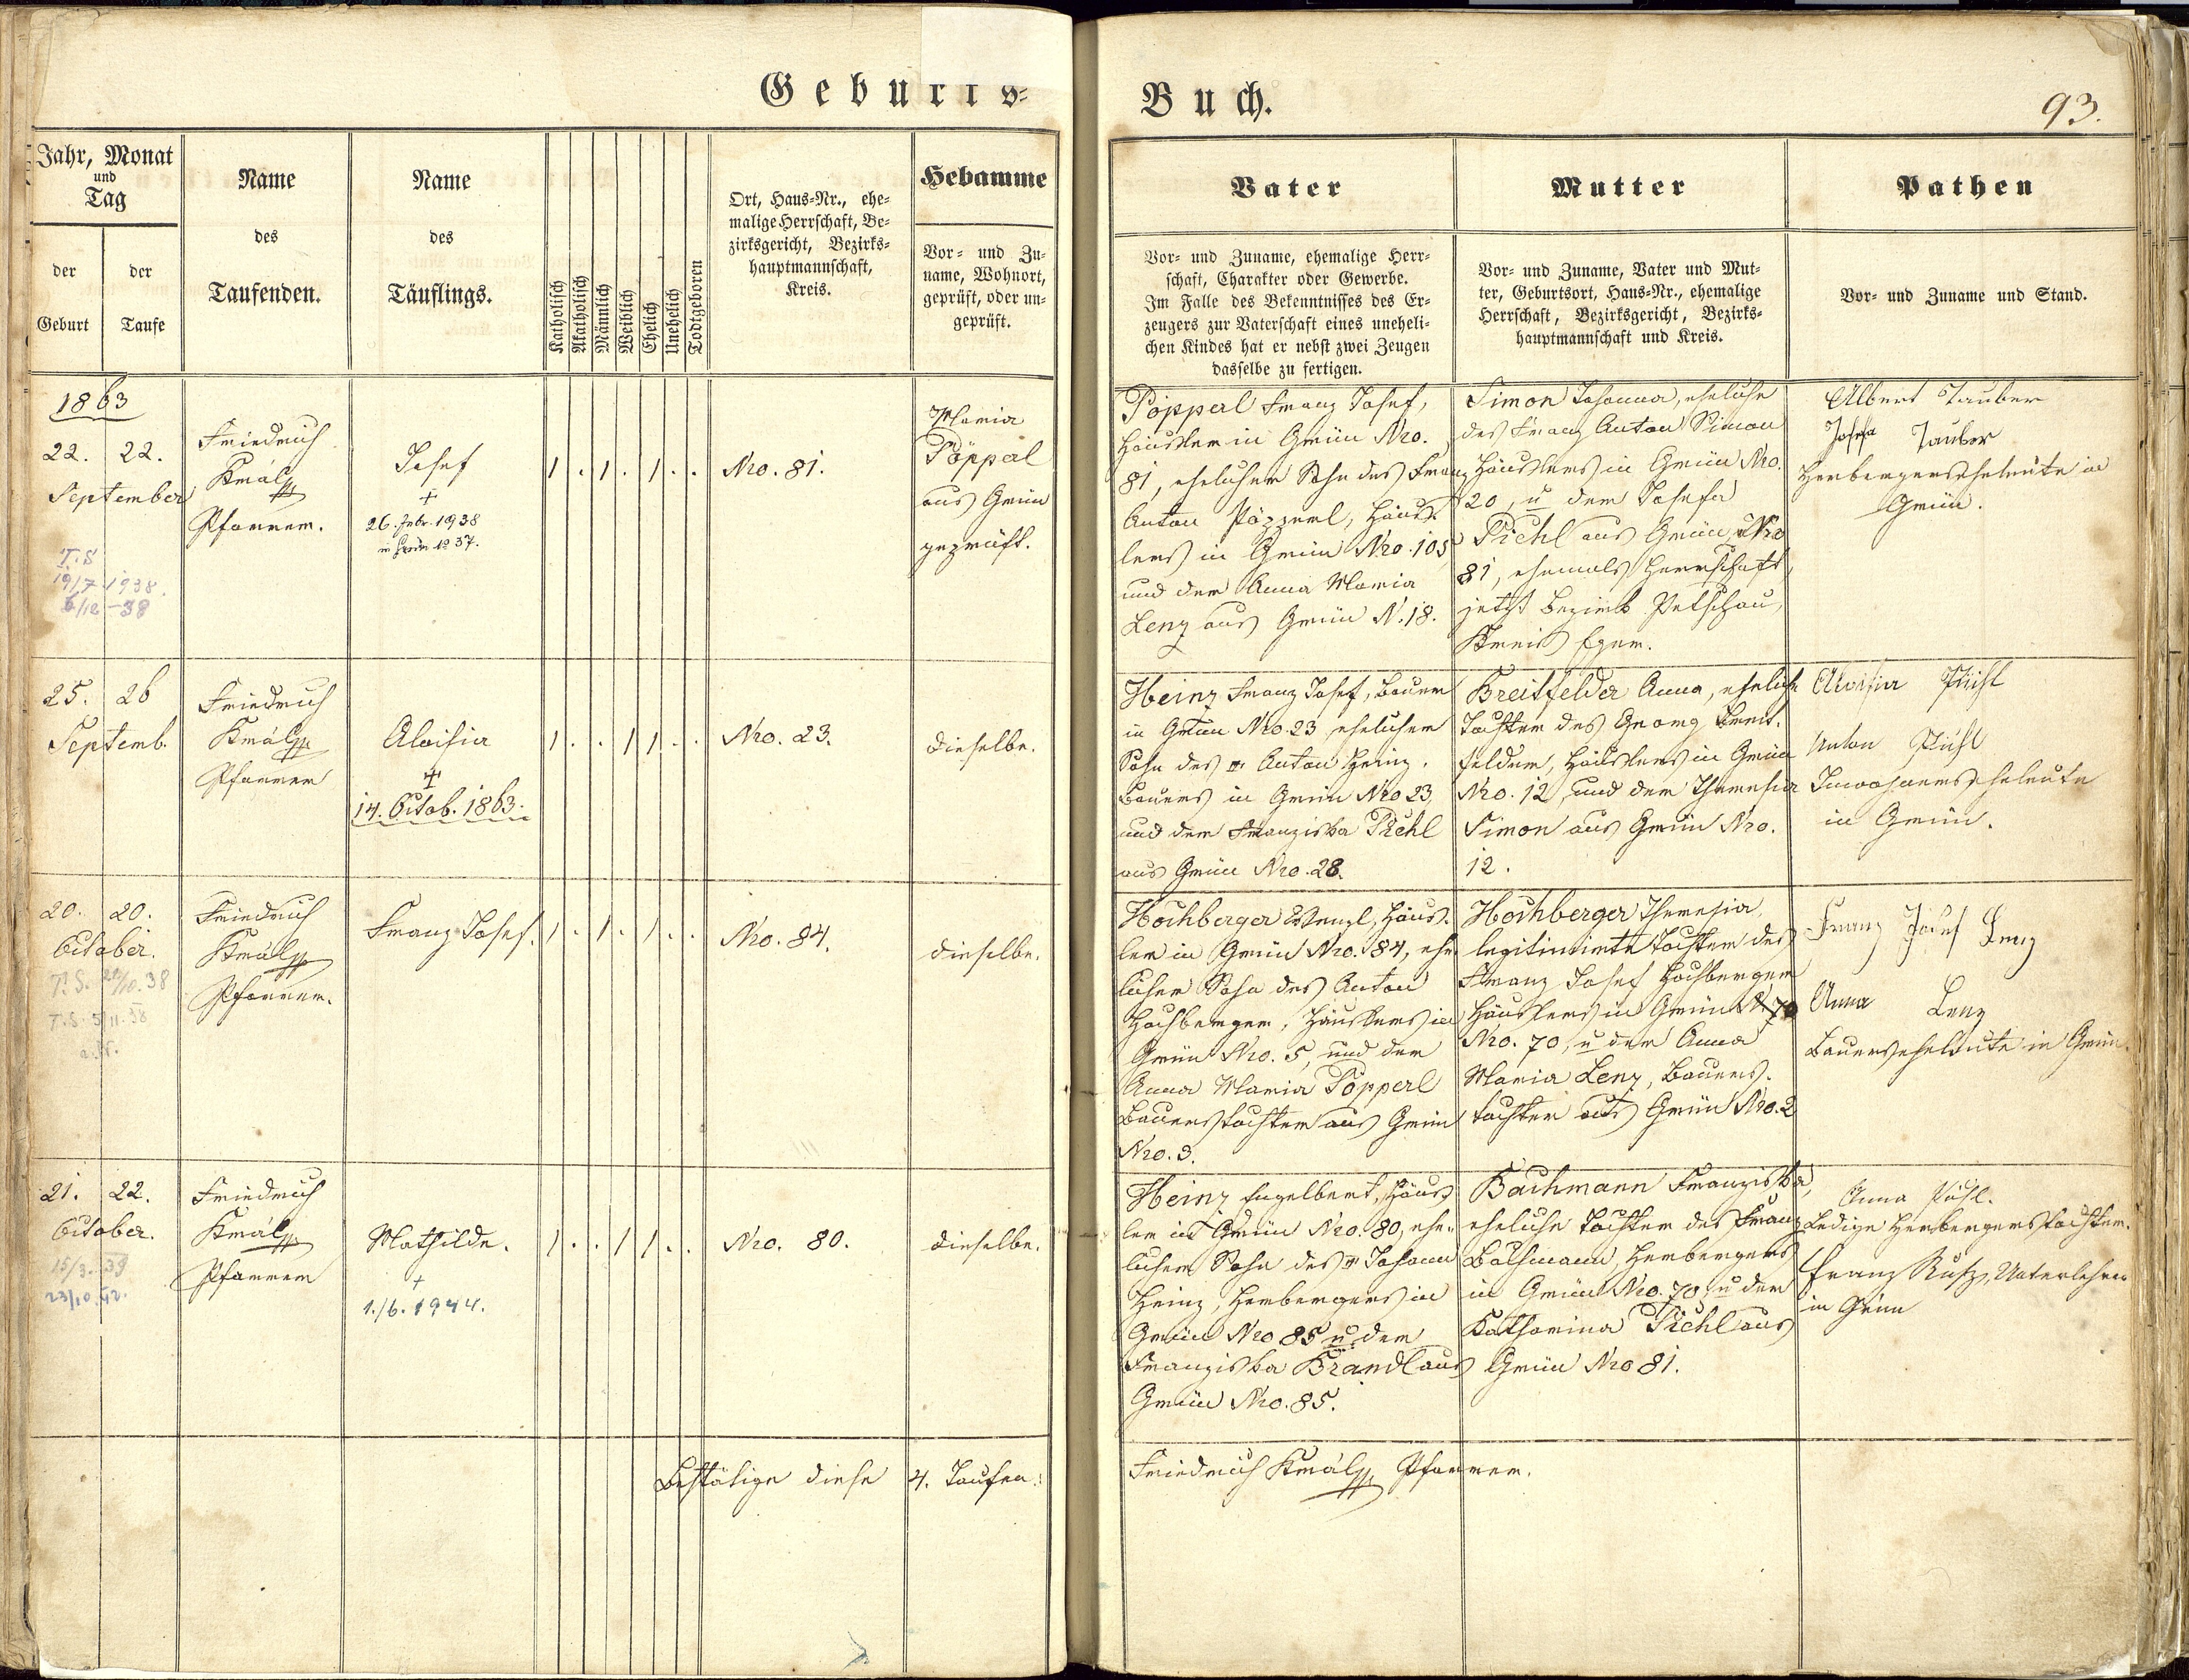 Geburts-
Buch.
93.
Jahr, Monat
und
Tag
der
Geburt
der
Taufe
Name
des
Taufenden.
Name
des
Täuflings.
Katholisch
Akatholisch
Männlich
Weiblich
Ehelich
Unehelich
Todtgeboren
Ort, Haus-Nr., ehe-
malige Herrschaft, Be-
zirksgericht, Bezirks-
hauptmannschaft,
Kreis.
Hebamme
Vor- und Zu-
name, Wohnort,
geprüft, oder un-
geprüft.
Vater
Vor- und Zuname, ehemalige Herr-
schaft, Charakter oder Gewerbe.
Im Falle des Bekenntnisses des Er-
zeugers zur Vaterschaft eines uneheli-
chen Kindes hat er nebst zwei Zeugen
dasselbe zu fertigen.
Mutter
Vor- und Zuname, Vater und Mut-
ter, Geburtsort, Haus-Nr., ehemalige
Herrschaft, Bezirksgericht, Bezirks-
hauptmannschaft und Kreis.
Pathen
Vor- und Zuname und Stand.
1863
22. 22.
September
T.S
19/7 1938.
6/12 -38
Friedrich
Kmal
Pfarrer.
Josef
+
26. Febr. 1938
in Grün No 37.
1 . 1 . 1 . .
Nro. 81.
Maria
Pöpperl
aus Grün
geprüft.
Pöpperl Franz Josef,
Häusler in Grün Nro.
81, ehelicher Sohn des Franz
Anton Pöpperl, Häus-
lers in Grün Nro. 105
und der Anna Maria
Lenz aus Grün N. 18.
Simon Johanna, eheliche
des Franz Anton Simon
Häuslers in Grün Nro.
20, u der Josefa
Pichl aus Grün Nro
81, ehemals Herrschaft,
jetzt Bezirk Petschau,
Kreis Eger.
Albert Tauber
Josefa Tauber
Herbergerseheleute in
Grün.
25. 26
Septemb.
Friedrich
Kmal
Pfarrer
Aloisia
+
14. Octob. 1863.
1 . . 1 1 . .
Nro. 23.
dieselbe.
Heinz Franz Josef, Bauer
in Grün Nro 23 ehelicher
Sohn des Anton Heinz,
Bauers in Grün Nro 23,
und der Franziska Pichl
aus Grün Nro. 28.
Breitfelder Anna, eheliche
Tochter des Georg Breit-
felder, Häuslers in Grün
Nro. 12, und der Theresia
Simon aus Grün Nro.
12.
Aloisia Pichl
Anton Pichl
Inwohnerseheleute
in Grün.
20. 20.
October.
T. S. 22/10. 38
T. S. 5/11. 38
Friedrich
Kmal
Pfarrer.
Franz Josef.
1 . 1 . 1 . .
Nro. 84.
dieselbe.
Hochberger Wenzl, Häus-
ler in Grün Nro. 84, ehe-
licher Sohn des Anton
Hochberger, Häuslers in
Grün Nro. 5, und der
Anna Maria Pöpperl
Bauerstochter aus Grün
Nro. 3.
Hochberger Theresia,
legitimirte Tochter des
Franz Josef Hochberger
Häuslers in Grün
Nro. 70, u der Anna
Maria Lenz, Bauers-
tochter aus Grün Nro. 2
Franz Josef Lenz
Anna Lenz
Bauerseheleute in Grün.
21. 22.
October.
15/3. 39
23/10. 42.
Friedrich
Kmal
Pfarrer
Mathilde.
+
1./6. 1944.
1 . . 1 1 . .
Nro. 80.
dieselbe.
Heinz Engelbert, Häus-
ler in Grün Nro. 80, ehe-
licher Sohn des Johann
Heinz, Herbergers in
Grün Nro 85 u. der
Franziska Brandl aus
Grün Nro. 85.
Bachmann Franziska,
eheliche Tochter des Franz
Bachmann, Herbergers
in Grün Nro. 70, u der
Katharina Pichl aus
Grün Nro 81.
Anna Pichl.
Ledige Herbergerstochter.
Franz Rutz, Unterlehrer
in Grün
Bestätige diese 4. Taufen:
Friedrich Kmal Pfarrer.